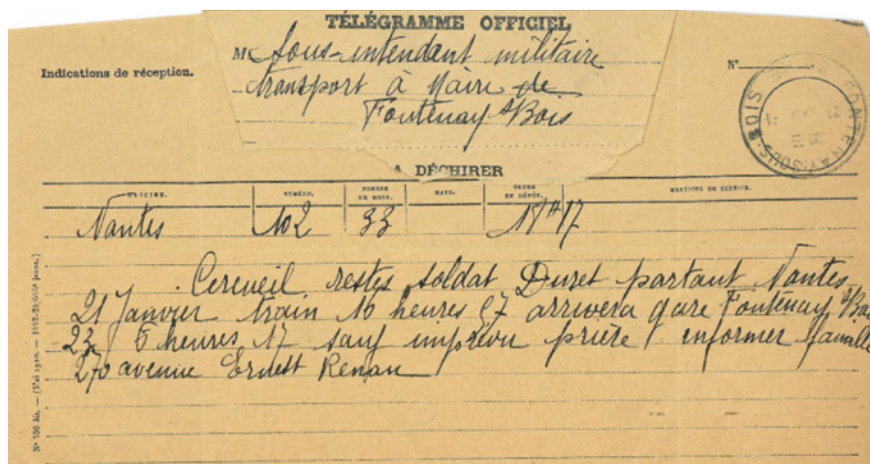 TÉLÉGRAMME OFFICIEL
Indications de réception.
M Sous-intendant militaire
transport à Maire de
Fontenay s/Bois
N°
FONTENAY-SOUS-BOIS
A DÉCHIRER
ORIGINE. NUMÉRO. NOMBRE DE MOTS. DATE. HEURE DE DÉPÔT. MENTIONS DE SERVICE.
Nantes 102 33 17
Cercueil restes soldat Duret partant Nantes
21 Janvier train 16 heures 57 arrivera gare Fontenay s/Bois
23 5 heures 17 sauf imprévu prière informer famille
270 avenue Ernest Renan